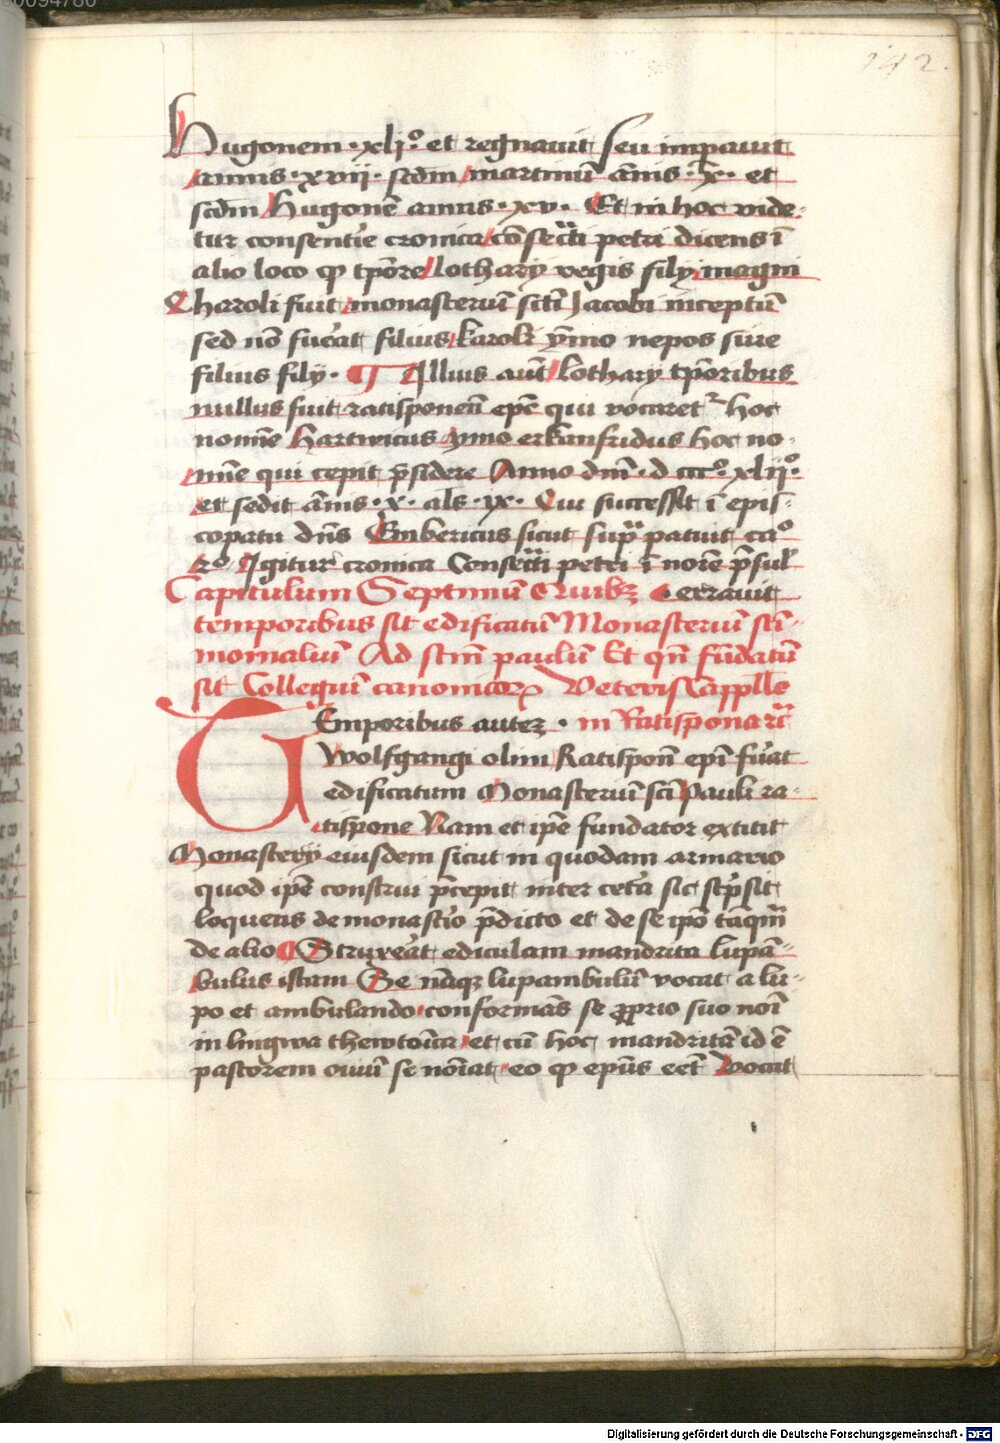 142.
Hugonem · xlj⁰ · et regnavit seu impavit
annis · xvij · scdm martinū ānis · x · et
scdm Hugonē annis · xv · Et in hoc vide-
tur consentīe cronica cōsecͣti petri dicens ī
alio loco ꝙ tp̄ore lothary regis fily magni
Charoli fuit monasteriū sc̄ti Jacobi inceptū
sed nō fuēat filius karoli ymo nepos siue
filius fily · ¶ Illius aūt lothary tp̄oribus
nullus fuit ratisponeñ epc̄ qui vocaret hoc
nomīe Hartwicus ymo erkanfridus hoc no-
mīe qui cepit p̄sidere Anno dm̄ · d ccc⁰ · xlij⁰ ·
et sedit ānis · x · als · ix · Cui successit ī epis-
copatu dn̄s Embericus sicut supͣ patuit ca⁰
2⁰ · Igitur cronica Consecͣti petri ī noīe p̄sul
Capitulum Septimū Quibꝫ · erravit
temporibus sit edificatū Monasteriū scī-
monialiū Ad sctm̄ paulū Et qn̄ fūdatū
sit Collegiū canonicoꝝ Veteris Cappelle
Temporibus autez · in Ratispona
Wolfgangi olim Ratisponn̄ epī fuāt
edificatum Monasteriū scī Pauli ra-
tispone Nam et ip̄e fundator extitit
Monastery eiusdem sicut in quodam armario
quod ip̄e construi p̄cepit inter cetā sic sc̄psit
loquens de monastīo p̄dicto et de se ip̄o tāqm̄
de alio ¶ Struxēat ediculam mandrita lupā-
bulus istam Se nāqꝫ lupambulū vocat a lu-
po et ambulando conformās se ꝓprio suo noī
in lingwa thewtoīca et cū hoc mandritā id ē
pastorem oviū se noīat eo ꝙ ep̄us eēt Vocat
Digitalisierung gefördert durch die Deutsche Forschungsgemeinschaft - DFG